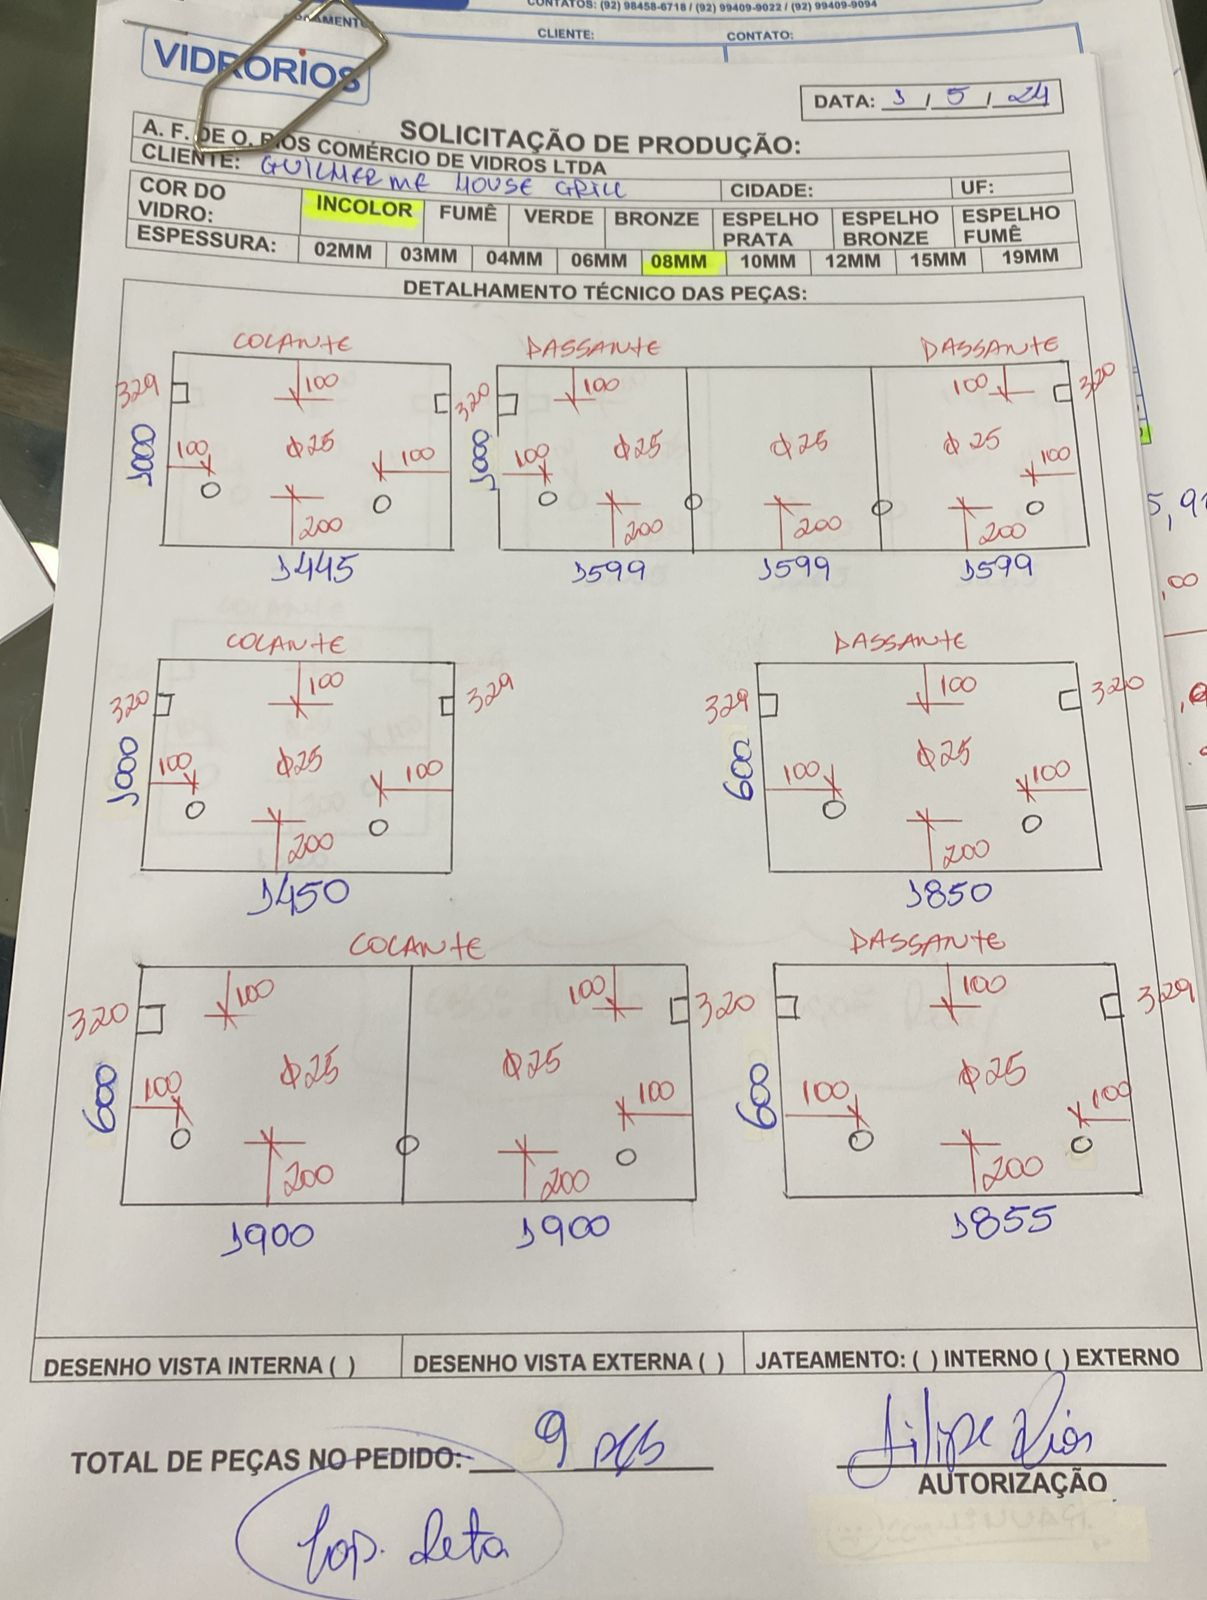 CONTATOS: (92) 98458-6718 / (92) 99409-9022 / (92) 99409-9094
CLIENTE: CONTATO:
VIDRORIOS
DATA: 3 / 5 / 24
SOLICITAÇÃO DE PRODUÇÃO:
A. F. DE O. RIOS COMÉRCIO DE VIDROS LTDA
CLIENTE: GUILHERME HOUSE GRILL CIDADE: UF:
COR DO VIDRO: INCOLOR FUMÊ VERDE BRONZE ESPELHO PRATA ESPELHO BRONZE ESPELHO FUMÊ
ESPESSURA: 02MM 03MM 04MM 06MM 08MM 10MM 12MM 15MM 19MM
DETALHAMENTO TÉCNICO DAS PEÇAS:
COLANTE PASSANTE PASSANTE
329 100 320 100 100 320
1000 100 Φ25 100 1000 100 Φ25 Φ25 Φ25 100
200 200 200 200
1445 1599 1599 1599
COLANTE PASSANTE
320 100 329 329 100 320
1000 100 Φ25 100 600 100 Φ25 100
200 200
1450 1850
COLANTE PASSANTE
320 100 100 320 100 329
600 100 Φ25 Φ25 100 600 100 Φ25 100
200 200 200
1900 1900 1855
DESENHO VISTA INTERNA ( ) DESENHO VISTA EXTERNA ( ) JATEAMENTO: ( ) INTERNO ( ) EXTERNO
TOTAL DE PEÇAS NO PEDIDO: 9 pçs Filipe Rios
AUTORIZAÇÃO
Lap. Reta